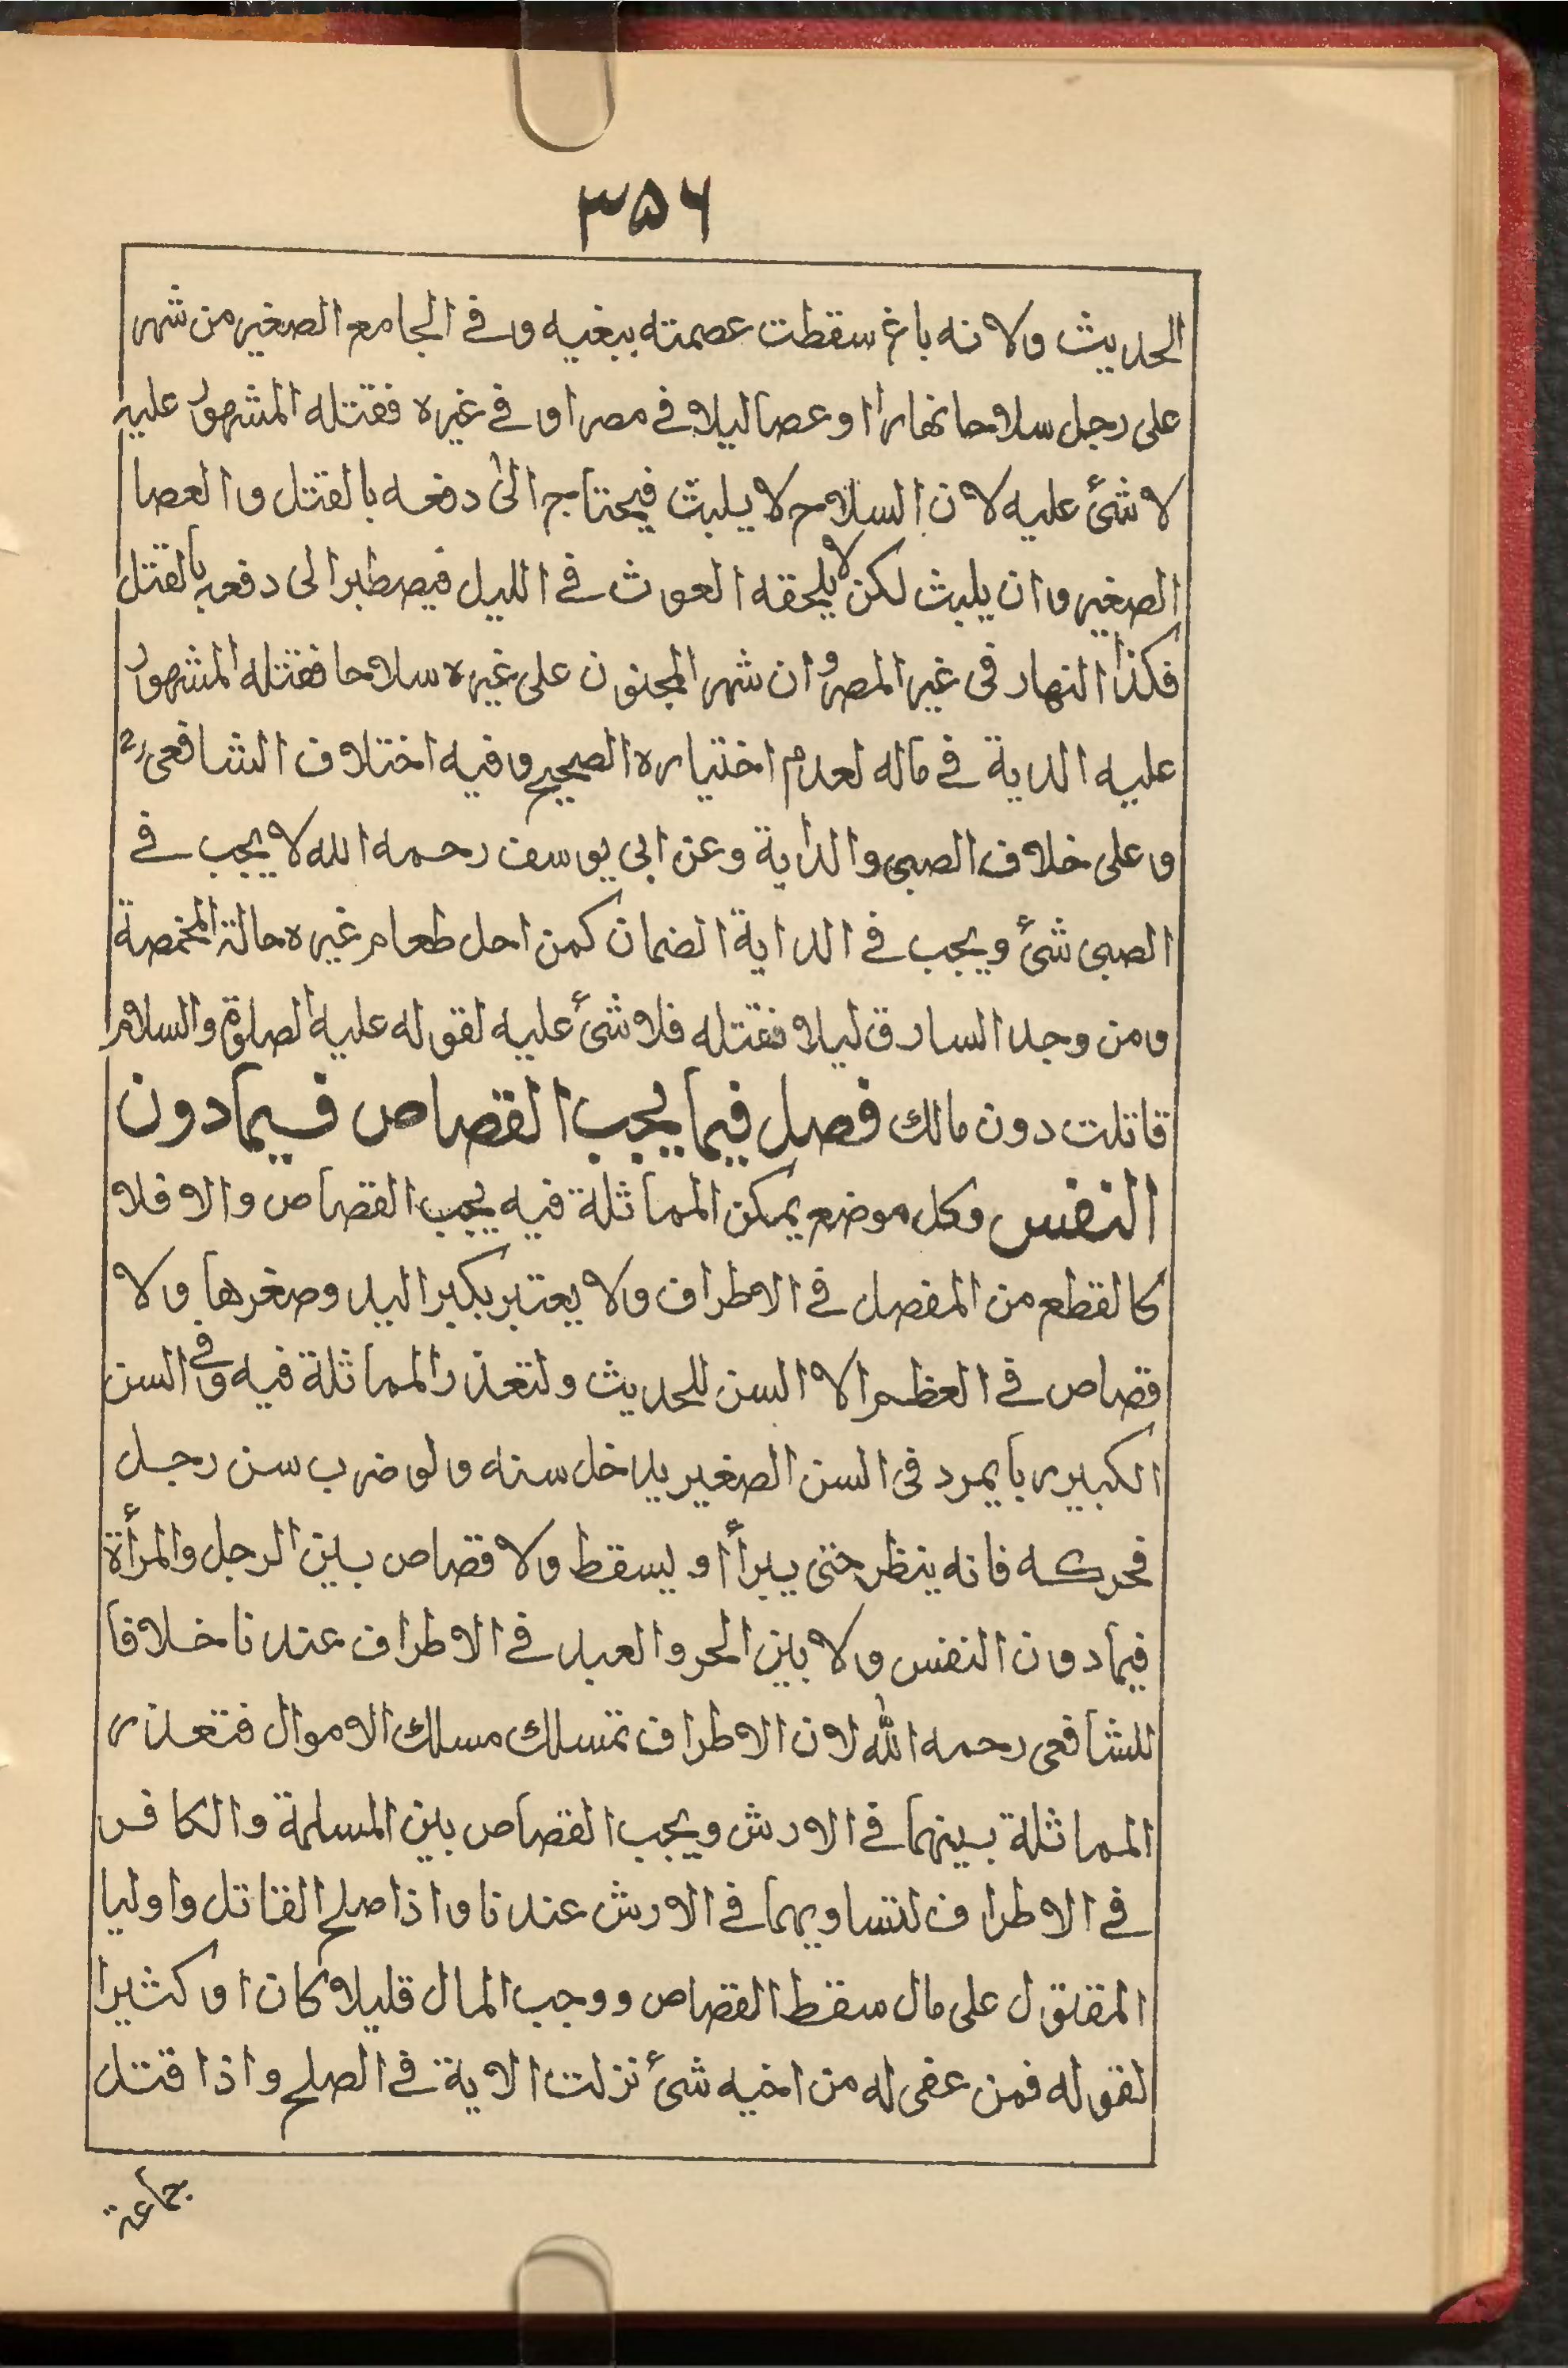 ۳۵۶
الحديث ولانه باغ سقطت عصمته ببغيه وفي الجامع الصغير من شهر
على رجل سلاحا نهارا او عصا ليلا في مصر او في غيره فقتله المشهور عليه
لا شئ عليه لان السلاح لا يلبث فيحتاج الى دفعه بالقتل والعصا
الصغير وان يلبث لكن لا يلحقه الغوث في الليل فيصطبر الى دفعه بالقتل
فكذا النهار في غير المصر وان شهر المجنون على غيره سلاحا فقتله المشهور
عليه الدية في ماله لعدم اختياره الصحيح وفيه اختلاف الشافعى رح
وعلى خلاف الصبى والداية وعن ابى يوسف رحمه الله لا يجب في
الصبى شئ ويجب في الداية الضمان كمن احل طعام غيره حالة المخمصة
ومن وجد السارق ليلا فقتله فلا شئ عليه لقوله عليه الصلوة والسلام
قاتلت دون مالك فصل فيما يجب القصاص فيمادون
النفس وكل موضع يمكن المماثلة فيه يجب القصاص والا فلا
كالقطع من المفصل في الاطراف ولا يعتبر بكبر اليد وصغرها ولا
قصاص في العظم الا السن للحديث ولتعذر المماثلة فيه وفى السن
الكبير يبرد فى السن الصغير يدخل سنه ولو ضرب سن رجل
فحركه فانه ينظر حتى يبرأ او يسقط ولا قصاص بين الرجل والمرأة
فيما دون النفس ولا بين الحر والعبد في الاطراف عندنا خلافا
للشافعى رحمه الله لان الاطراف تمسلك مسلك الاموال فتعذر
المماثلة بينهما في الارش ويجب القصاص بين المسلمة والكافر
في الاطراف لتساويهما في الارش عندنا واذا صلح القاتل واوليا
المقتول على مال سقط القصاص ووجب المال قليلا كان او كثيرا
لقوله فمن عفى له من اخيه شئ نزلت الاية في الصلح واذا قتل
جماعة